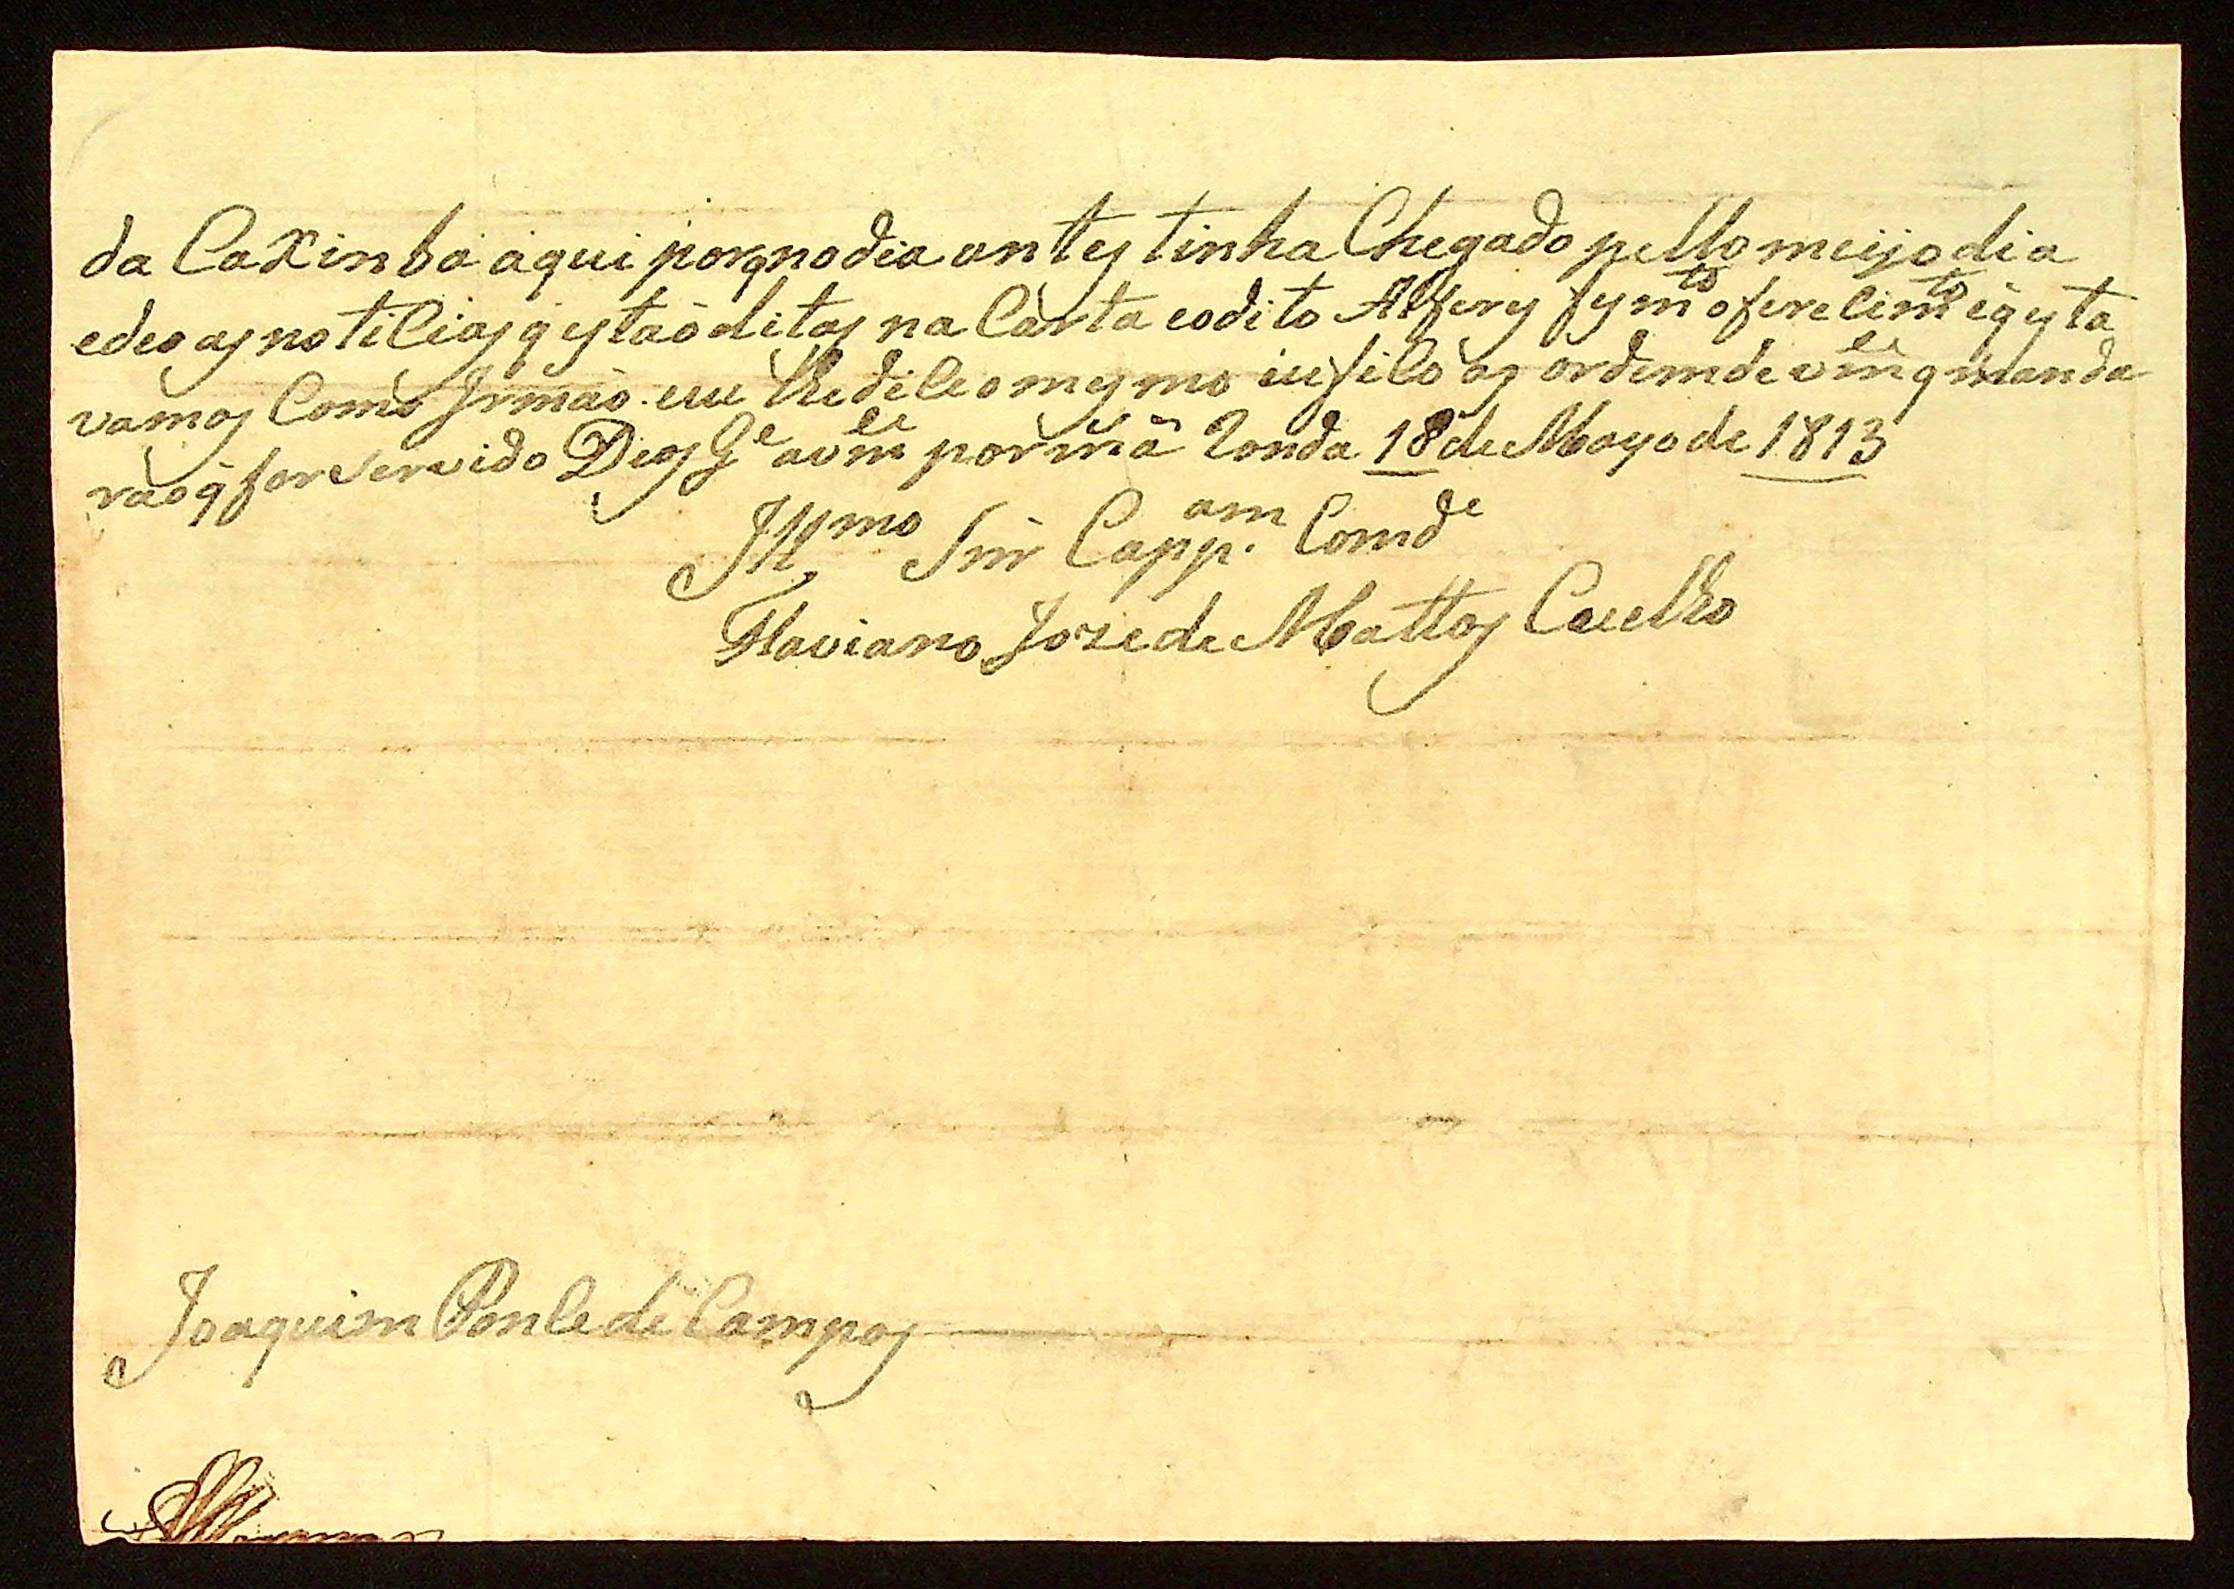 da Caximba aqui porq no dia antes tinha Chegado pello meiyo dia
e deo as noticias q estaõ ditas na Carta e o dito Alferes fes m.to oferecim.to e q esta
vamos Como Irmaõ. eu lhe dice o mesmo iu fico as ordem de vm.ce q manda
rá o q for servido Deos G.e a vm.ce por m.a Ronda 18 de Mayo de 1813
Ill.mo Snr Capp.am Comd.e
Flaviano Joze de Mattos Cuelho
Joaquim Ponce de Campos